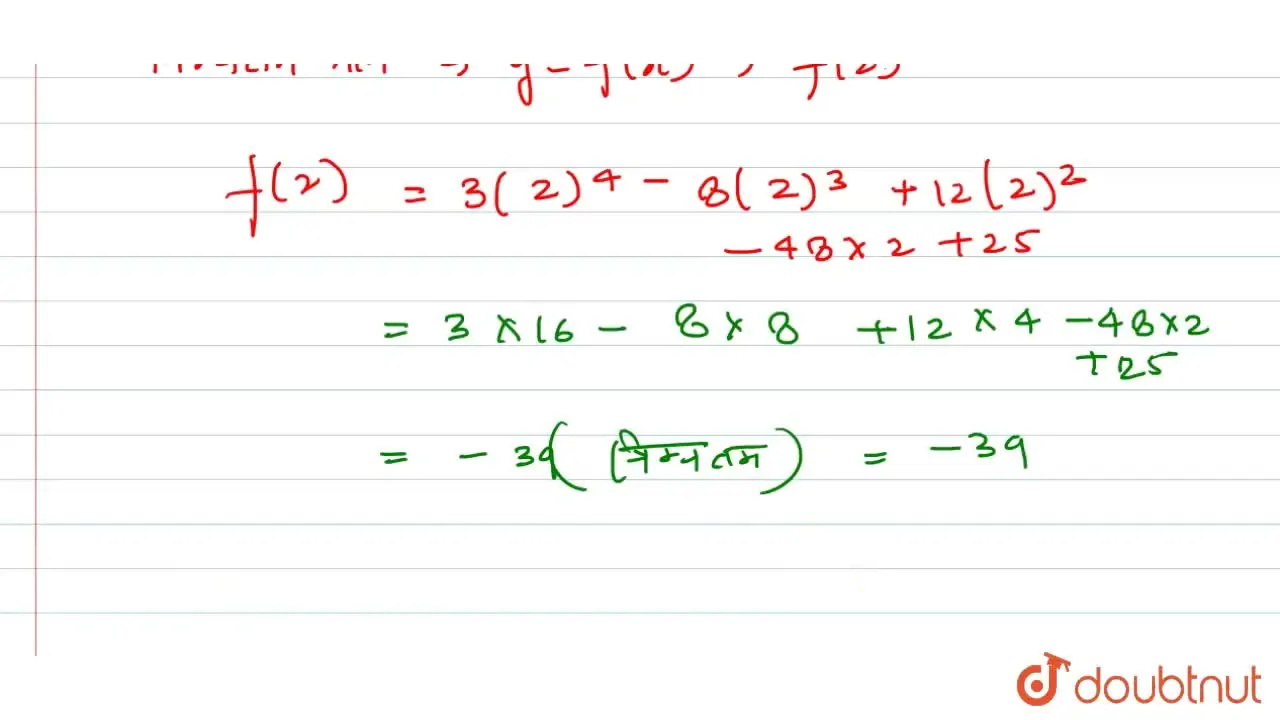 y = f(x) , f(2)
f(2) = 3(2)⁴ - 8(2)³ + 12(2)²
- 48 × 2 + 25
= 3 × 16 - 8 × 8 + 12 × 4 - 48 × 2
+ 25
= - 39 ( (निम्नतम) = - 39
doubtnut